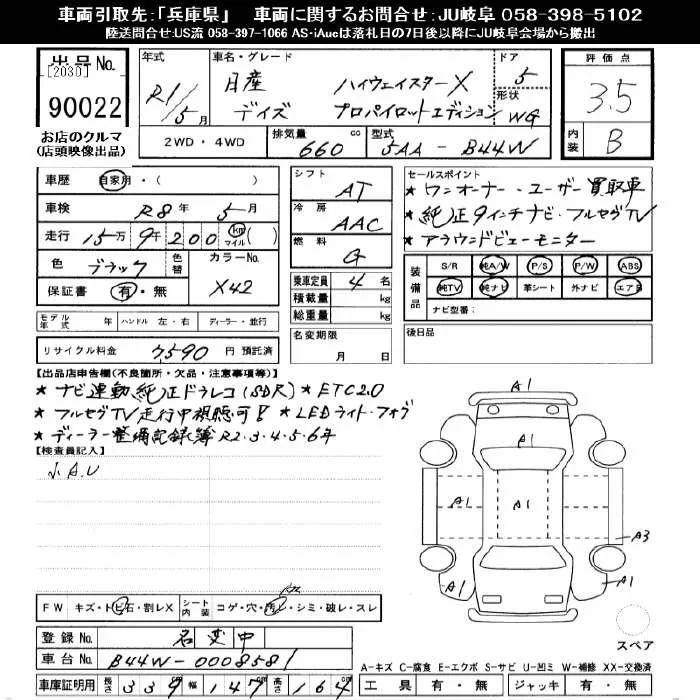 車両引取先:「兵庫県」 車両に関するお問合せ:JU岐阜 058-398-5102
陸送問合せ:US流 058-397-1066 AS・iAucは落札日の7日後以降にJU岐阜会場から搬出
出品No.
[2030]
90022
お店のクルマ
(店頭映像出品)
年式 R1/5月
車名・グレード 日産 ハイウェイスターX
デイズ プロパイロットエディション
ドア 5
形状 WG
2WD・4WD 排気量 660 cc 型式 5AA-B44W
評価点 3.5
内装 B
車歴 自家用・( )
車検 R8年 5月
走行 15万9千200 km マイル( )
色 ブラック 色替 カラーNo. X42
保証書 有・無
モデル年式 年 ハンドル 左・右 ディーラー・並行
リサイクル料金 7,590 円 預託済
シフト AT
冷房 AAC
燃料 G
乗車定員 4 名
積載量 kg
総重量 kg
名変期限 月 日
セールスポイント
★ワンオーナー・ユーザー買取車
★純正9インチナビ・フルセグTV
★アラウンドビューモニター
装備品 S/R 純A/W P/S P/W ABS
純TV 純ナビ 革シート 外ナビ エアB
ナビ型番:
後日品
【出品店申告欄(不良箇所・欠品・注意事項等)】
★ナビ連動純正ドラレコ(SDR) ★ETC2.0
★フルセグTV走行中視聴可! ★LEDライト・フォグ
★ディーラー整備記録簿R2.3.4.5.6年
【検査員記入】
小A.U
FW キズ・トビ石・割レX シート内装 コゲ・穴・汚レ・シミ・破レ・スレ
登録No. 名変中
車台No. B44W-0008581
車庫証明用 長さ 339 cm 幅 147 cm 高さ 164 cm
A1
A1
A1
A1
A3
A1
A1
スペア
A-キズ C-腐食 E-エクボ S-サビ U-凹ミ W-補修 XX-交換済
工具 有・無 ジャッキ 有・無